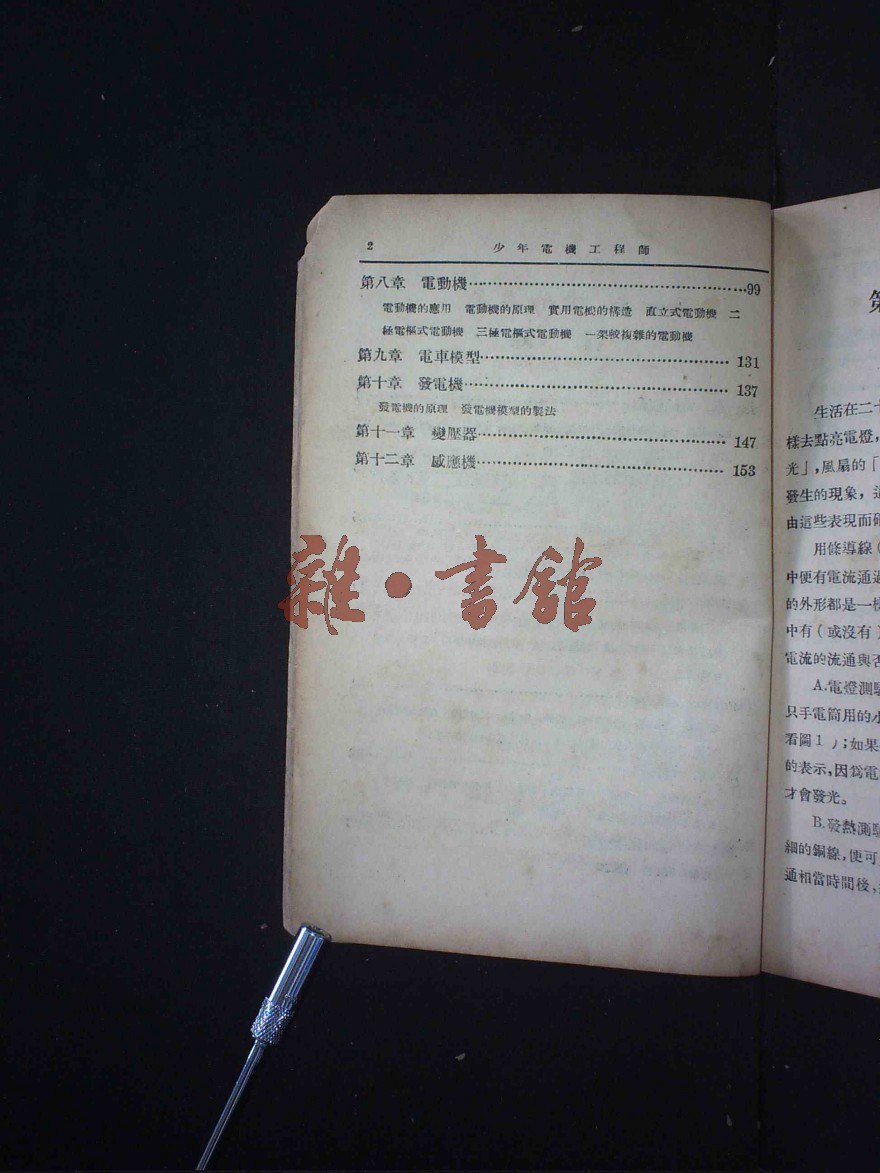 2 少年電機工程師
第八章 電動機…………99
電動機的應用 電動機的原理 實用電機的構造 直立式電動機 二
極電樞式電動機 三極電樞式電動機 一架較複雜的電動機
第九章 電車模型…………131
第十章 發電機…………137
發電機的原理 發電機模型的製法
第十一章 變壓器…………147
第十二章 感應機…………153
雜·書館
第
生活在二十
樣去點亮電燈，
光」，風扇的「
發生的現象，
由這些表現而
用條導線（
中便有電流通過
的外形都是一樣
中有（或沒有）
電流的流通與否
A.電燈測驗
只手電筒用的小
看圖1）；如果
的表示，因爲電
才會發光。
B.發熱測驗
細的銅線，便可
通相當時間後，